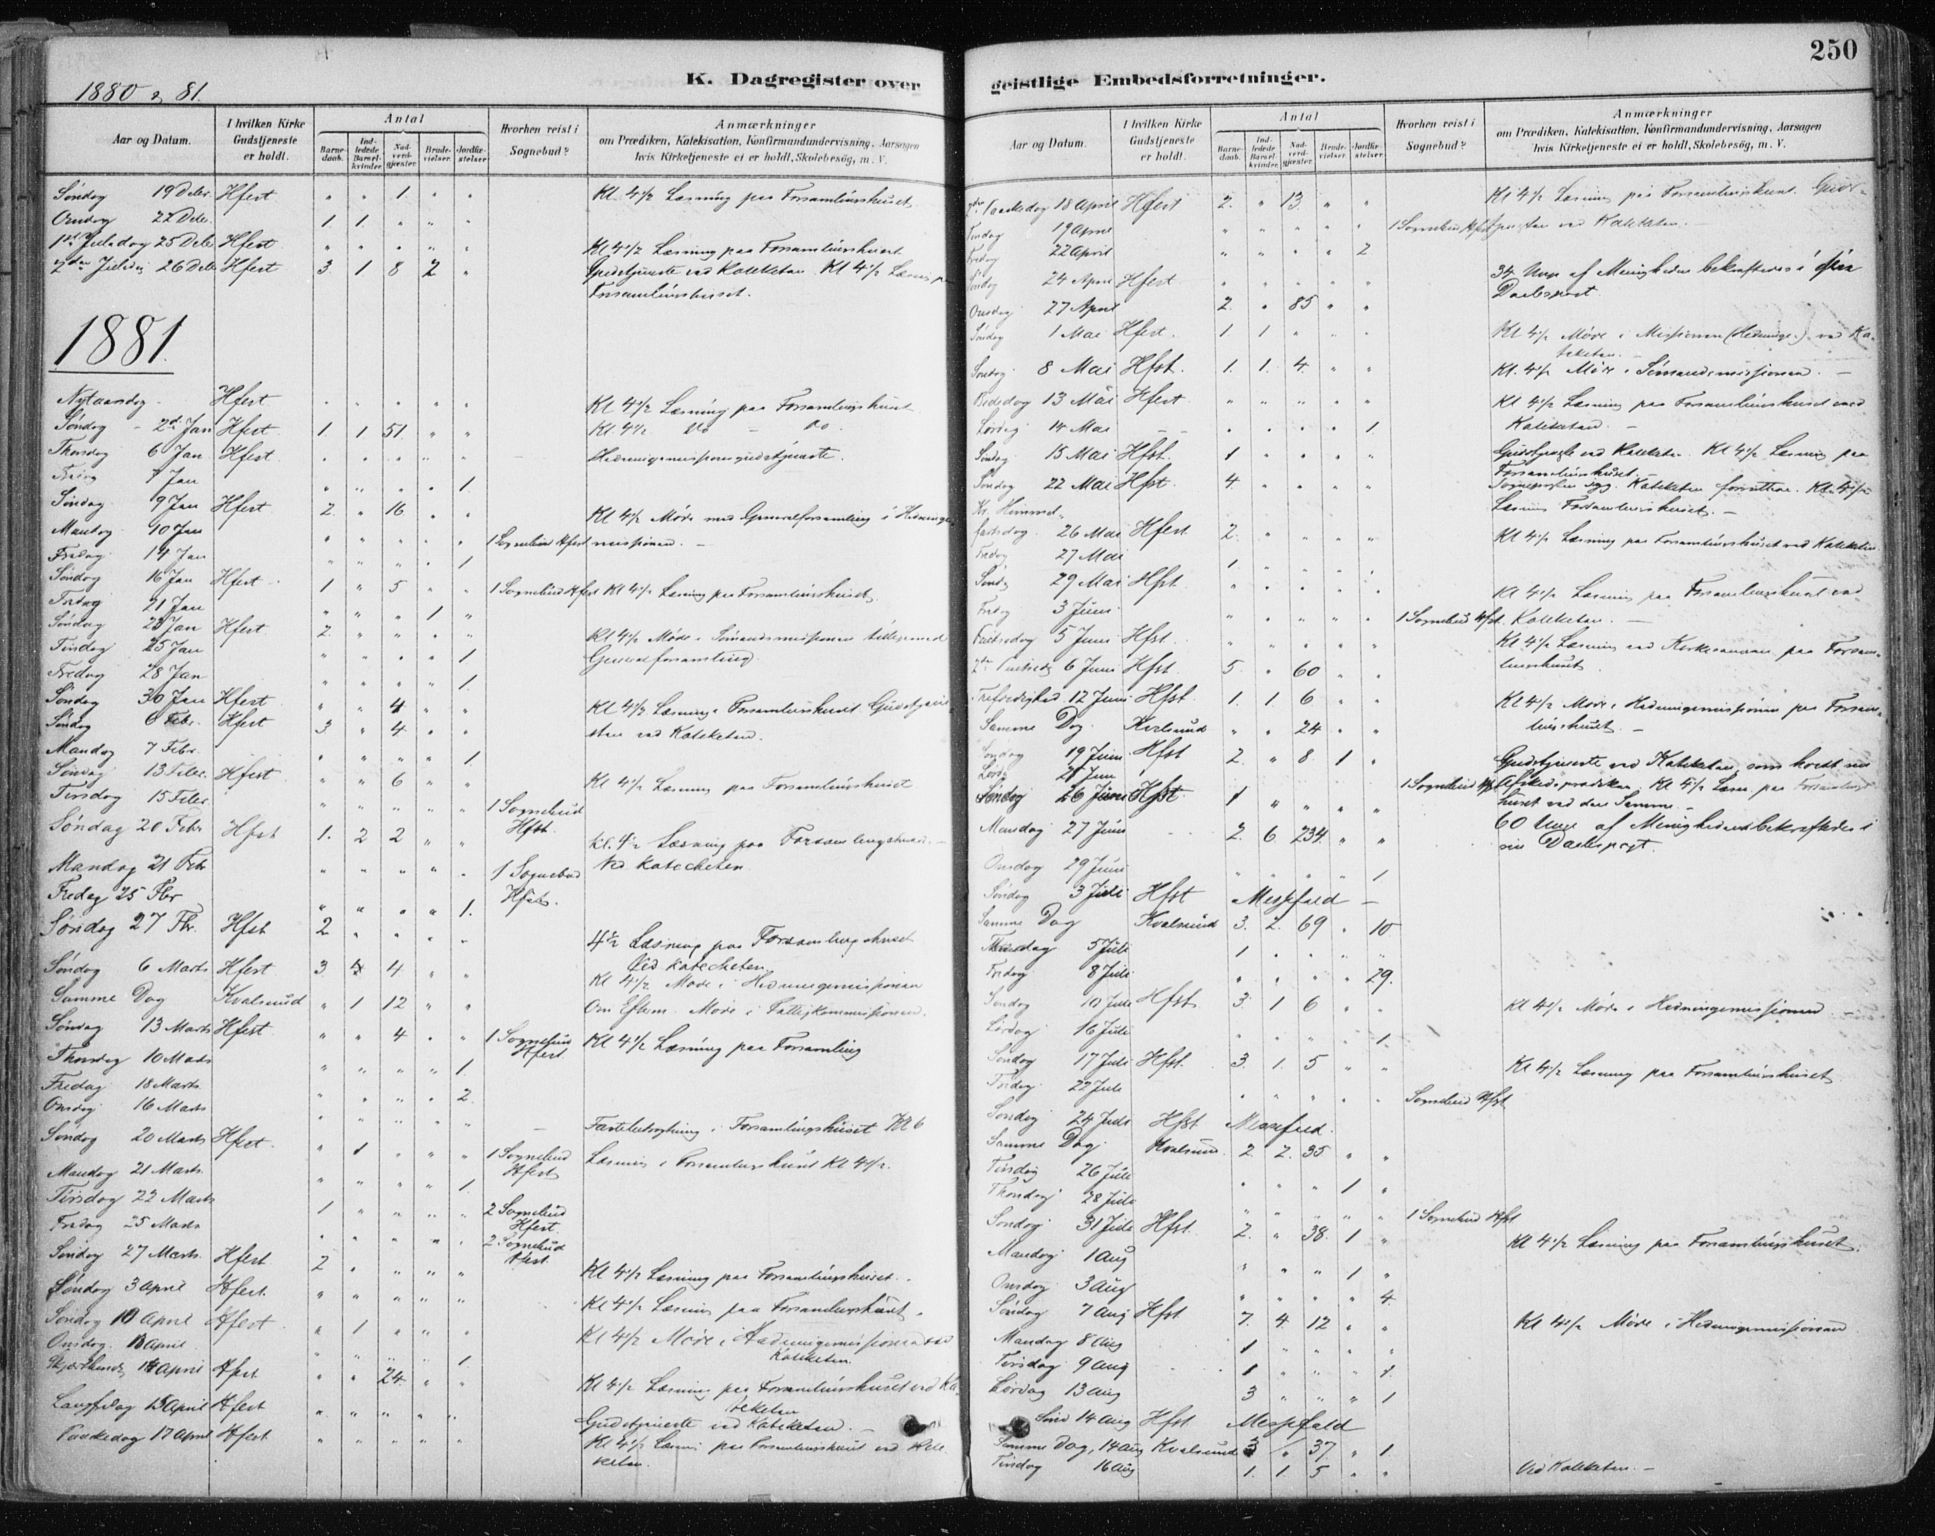 250
1880 & 81.
K. Dagregister over geistlige Embedsforretninger.
Aar og Datum.
I hvilken Kirke Gudstjeneste er holdt.
Antal
Barne-daab.
Ind-ledede Barsel-kvinder.
Nad-verd-gjester.
Brude-vielser.
Jordfæ-stelser.
Hvorhen reist i Sognebud?
Anmærkninger
om Prædiken, Katekisation, Konfirmandundervisning, Aarsagen
hvis Kirketjeneste ei er holdt, Skolebesög, m. V.
Søndag 19 Debr. Hfest " " 1 " " Kl 4½ Læsning paa Forsamlingshuset
Onsdag 22 Debr. 1 1 " " "
1ste Juledag 25 Debr Hfest " " " " " Kl 4½ Læsning paa Forsamlingshuset
2den Juledag 26 Debr Hfest 3 1 8 2 " Gudstjeneste ved Kateketen. Kl 4½ Læsn. p
Forsamlingshuset.
1881.
Nytaarsdag Hfest " " " " " Kl 4½ Læsning paa Forsamlingshuset
Søndag 2d Jan Hfest. 1 1 51 " " Kl. 4½ Do – Do.
Thorsdag 6 Jan Hfest. " " " " " Hedningemissionsgudstjeneste.
Fredag 7 Jan " " " " 1.
Søndag 9 Jan Hfest 2 " 16 " " Kl 4½ Møde med Generalforsamling i Hedninge-
Mandag 10 Jan " " " " " 1 Sognebud Hfest missionen. –
Fredag 14 Jan " " " " 1
Søndag 16 Jan Hfest 1 " 5 " " 1 Sognebud Hfest Kl 4½ Læsning paa Forsamlingshuset
Fredag 21 Jan " " " 1 "
Søndag 23 Jan Hfest 2 " " " " Kl 4½ Møde i Sømandsmissionen tilligemed
Tirsdag 25 Jan " " " " 1. Generalforsamling.
Fredag 28 Jan " " " " 1.
Søndag 30 Jan Hfest " " 4 " " Kl 4½ Læsning i Forsamlingshuset. Gudstjene-
Søndag 6 Febr. Hfest 3 " 4 " " sten ved Kateketen.
Mandag 7 Febr. " " " " 1
Søndag 13 Febr. Hfest " " 6 " " Kl 4½ Læsning paa Forsamlingshuset
Tirsdag 15 Febr. " " " " " 1 Sognebud Hfst.
Søndag 20 Febr Hfst 1. 2 2 " " kl. 4½ Læsning paa Forsamlingshuset. –
Mandag 21 Febr " " " " " 1 Sognebud Hfst. Ved Katecheten
Fredag 25 Fbr " " " " 1.
Søndag 27 Fbr. Hfst 2 " " " " 4½ Læsning paa Forsamlingshuset
Ved Katecheten.
Søndag 6 Marts Hfest 3. 4 4 " " Kl 4½ Møde i Hedningemissionen
Samme Dag Kvalsund " 1 12 " " Om Efterm. Møde i Fattigkommissionen.
Søndag 13 Marts Hfest " " 4 " " 1 Sognebud Hfest Kl 4½ Læsning paa Forsamling
Thorsdag 10 Marts " " " " 1.
Fredag 18 Marts " " " " 2.
Onsdag 16 Marts " " " " " Fastebetragtning i Forsamlingshuset Kl 6
Søndag 20 Marts Hfest. " 1 " " " 1 Sognebud Hfest Læsning i Forsamlingshuset Kl 4½.
Mandag 21 Marts. " " " " 1.
Tirsdag 22 Marts 1 " " " " 2 Sognebud Hfest.
Fredag 25 Marts " " " " " 2 Sognebud Hfest.
Søndag 27 Marts. Hfest 2 " " " " Kl 4½ Læsning paa Forsamlingshuset.
Søndag 3 April Hfest. " " " " " Kl 4½ Læsning paa Forsamlingshuset.
Søndag 10 April Hfest. " 1 " " " Kl 4½ Møde i Hedningemissionen ved
Kateketen.
Onsdag 13 April " " " " 1
Skjærthorsd. 14 April Hfst " " 24 " " Kl 4½ Læsning paa Forsamlingshuset ved Ka-
teketen
Langfredag 15 April Hfest " " " " " Gudstjeneste ved Kateketen. –
Paaskedag 17 April Hfest. " " " " " Kl 4½ Læsn. paa Forsamlingshuset ved Kate
keten.
2den Paaskedag 18 April Hfest 2. " 13. " " Kl 4½ Læsning paa Forsamlingshuset. Gud-
Tirsdag 19 April " " " " " 1 Sognebud Hfst tjenesten ved Kateketen. –
Fredag 22 April " " " " 2
Søndag 24 April Hfest " " " " " 34 Unge af Menigheden bekræftedes i sin
Daabspagt
Onsdag 27 April 2. " 85 " "
Søndag 1 Mai Hfest. 1. 1 " " " Kl 4½ Møde i Missionen (Hedninge-) ved Ka-
teketen. –
Søndag 8 Mai Hfst. 1. 1. 4. " " Kl. 4½ Møde i Sømandsmissionen. –
Bededag 13 Mai Hfest " " " " " Kl 4½ Læsning paa Forsamlingshuset ved
Lørdag 14 Mai – – " " " " 1 Kateketen. –
Søndag 15 Mai Hfst. 1 " " " " Gudstjeneste ved Kateketen Kl 4½ Læsning paa
Forsamlingshuset. –
Søndag 22 Mai Hfst. 4. " " " " Sognepresten syg. Kateketen forrettede. Kl. 4½
Læsning Forsamlingshuset. –
Kr. Himmel-
fartsdag 26 Mai Hfest 2. " " " " Kl 4½ Læsning paa Forsamlingshuset ved Kateketen
Fredag 27 Mai 1 " " " "
Søndag 29 Mai Hfst. " " " " " Kl 4½ Læsning paa Forsamlingshuset ved
Fredag 3 Juni " " " " " 1 Sognebud Hfst. Kateketen. –
5 Juni Hfst. " " " " " Kl 4½ Læsning ved Kirkesangeren paa Forsam-
lingshuset.
2den 6 Juni Hfst. 5. " 60 " "
Trefoldighed 12 Juni Hfst. 1. 1. 6 " " Kl 4½ Møde i Hedningemissionen paa Forsam-
lingshuset. –
Samme Dag Kvalsund " " 24 " "
Søndag 19 Juni Hfst 2. " 8. 1 " Gudstjeneste ved Kateketen som holdt sin
Juni 1 Sognebud Hfst Afskedsprædiken. Kl 4½ Læsn. paa Forsamlings-
Søndag 26 Juni Hfst. 1 " " " " huset ved den Samme. –
Mandag 27 Juni 2. 6. 234. " " 60 Unge af Menigheden bekræftedes i
sin Daabspagt.
Onsdag 29 Juni " " " " 1
Søndag 3 Juli Hfst Messefald –
Samme Dag Kvalsund 3. 2. 69 " 10
5 Juli 1 " " " "
Fredag 8 Juli " " " " 29.
Søndag 10 Juli Hfst 3. 1 6 " " Kl 4½ Møde i Hedningemissionen –
Lørdag 16 Juli " " " " 1.
Søndag 17 Juli Hfst. 3. 1. 5 " " Kl 4½ Læsning paa Forsamlingshuset
Fredag 22 Juli " " " " " Sognebud Hfst
Søndag 24 Juli Hfst Messefald.
Samme Dag Kvalsund. 2. 2. 35 " "
Tirsdag 26 Juli " " " 1 "
Thorsdag 28 Juli " " " " " 1 Sognebud Hfst
Søndag 31 Juli Hfst. 2. " 38. 1 " Kl 4½ Læsning paa Forsamlingshuset.
Mandag 1 Aug " " " 1 "
Onsdag 3 Aug " " " " 4.
Søndag 7 Aug Hfst 7. 4. 12 " " Kl 4½ Møde i Hedningemissionen
Mandag 8 Aug 1 " " " "
Tirsdag 9 Aug 1 " " " 1.
Lørdag 13 Aug 3 " " " 1
Sønd 14 Aug Hfst Messefald
Samme Dag, 14 Aug Kvalsund 3 " 37 " 1.
Tirsdag 16 Aug 1. 1. 5 " " Ved Kateketen. –